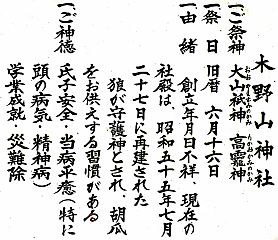 木野山神社
一、ご祭神
大山祇神 高龗神
おおやまずみかみ たかおかみのかみ
一、祭日 旧暦 六月十六日
一、由緒 創立年月日不祥、現在の
社殿は、昭和五十五年七月
二十七日に再建された
狼が守護神とされ、胡瓜
をお供えする習慣がある
一、ご神徳
氏子安全・当病平癒(特に
頭の病気・精神病)
学業成就・災難除